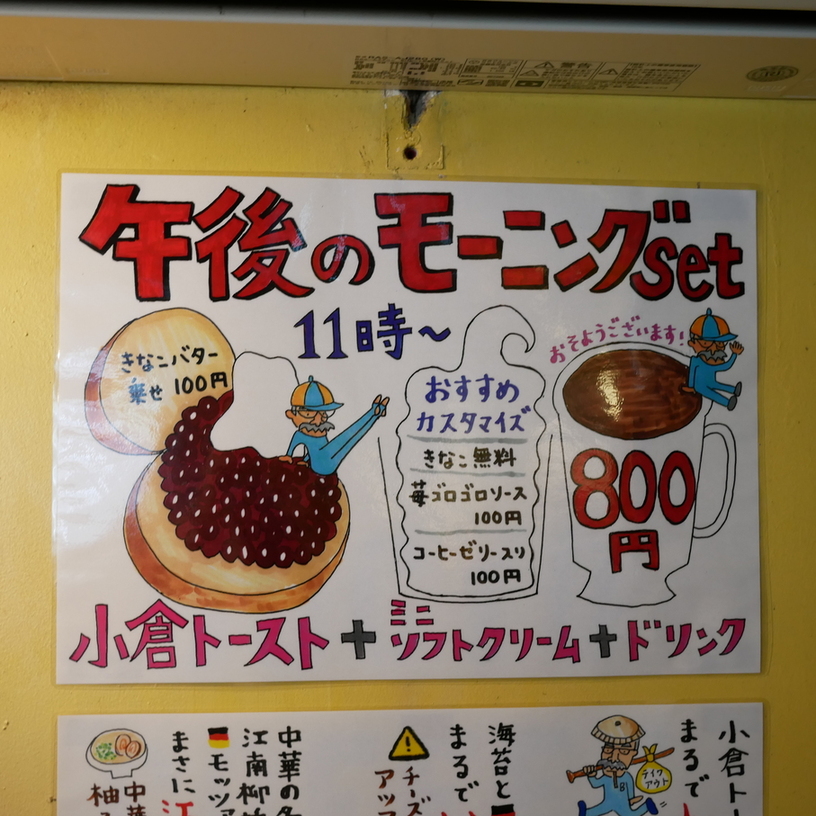 警告
午後のモーニングset
11時～
きなこバター
乗せ 100円
おすすめ
カスタマイズ
きなこ無料
苺ゴロゴロソース
100円
コーヒーゼリー入り
100円
おそようございます!
800
円
小倉トースト+ミニソフトクリーム+ドリンク
小倉ト
まるで
テイク
アウト
海苔と
まるで
チーズ
アッ
中華の
江南柳
モッツァ
まさに江
中華
柚